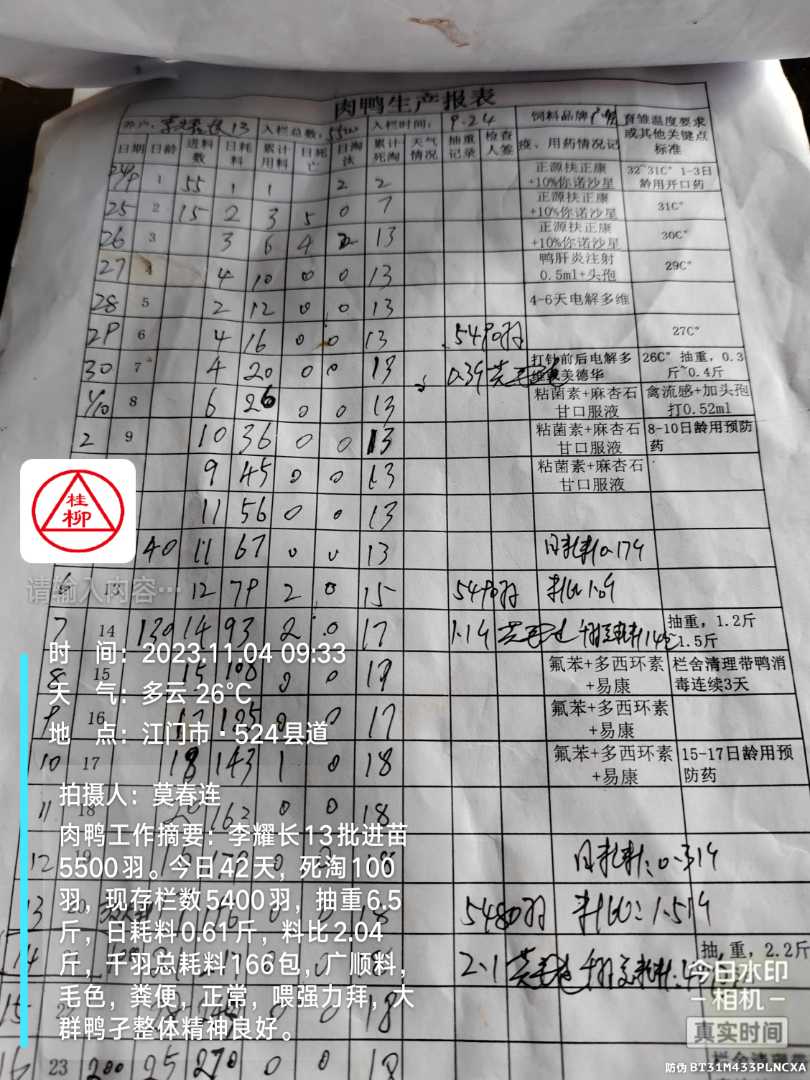 肉鸭生产报表
养户: 李耀长13 入栏总数: 5500 入栏时间: 9.24 饲料品牌 育雏温度要求或其他关键点标准
日期 日龄 进料数 日耗料 累计用料 日死亡 日淘汰 累计死淘 天气情况 抽重记录 检查人签 疫、用药情况记
24/9 1 55 1 1 2 2 正源扶正康+10%你诺沙星 32~31C° 1-3日龄用开口药
25 2 15 2 3 5 0 7 正源扶正康+10%你诺沙星 31C°
26 3 3 6 4 2 13 正源扶正康+10%你诺沙星 30C°
27 4 4 10 0 0 13 鸭肝炎注射0.5ml+头孢 29C°
28 5 2 12 0 0 13 4-6天电解多维
29 6 4 16 0 0 13 5490羽 27C°
30 7 4 20 0 0 13 0.39 打针前后电解多维 美德华 26C° 抽重,0.3斤~0.4斤
1/10 8 6 26 0 0 13 粘菌素+麻杏石甘口服液 禽流感+加头孢打0.52ml
2 9 10 36 0 0 13 粘菌素+麻杏石甘口服液 8-10日龄用预防药
9 45 0 0 13 粘菌素+麻杏石甘口服液
11 56 0 0 13
40 11 67 0 0 13 日耗料0.179
6 13 12 79 2 0 15 5490羽 料比1.09
7 14 130 14 93 2 0 17 1.19 抽重,1.2斤 1.5斤
8 15 15 108 0 0 17 氟苯+多西环素+易康 栏舍清理带鸭消毒连续3天
9 16 17 125 0 0 17 氟苯+多西环素+易康
10 17 18 143 1 0 18 氟苯+多西环素+易康 15-17日龄用预防药
11 18 162 0 0 18
12 19 18 日耗料:0.319
13 20 0 0 18 5480羽 料比:1.519
14 18 2.1 抽,重,2.2斤
15 18
16 23 200 25 270 0 0 18 栏舍清理
桂柳
请输入内容…
时 间:2023.11.04 09:33
天 气:多云 26°C
地 点:江门市·524县道
拍摄人:莫春连
肉鸭工作摘要:李耀长13批进苗
5500羽。今日42天,死淘100
羽,现存栏数5400羽,抽重6.5
斤,日耗料0.61斤,料比2.04
斤,千羽总耗料166包,广顺料,
毛色,粪便,正常,喂强力拜,大
群鸭子整体精神良好。
今日水印
-相机-
真实时间
防伪 BT31M433PLNCXA